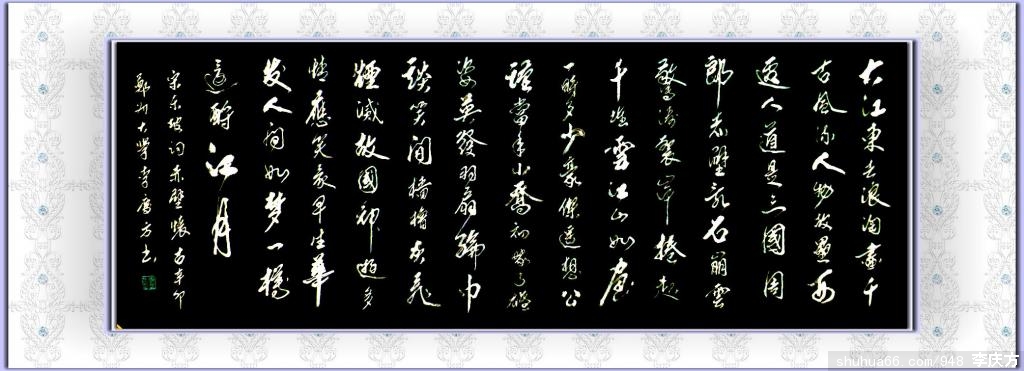 大江東去浪淘盡千
古風流人物故壘西
邊人道是三國周
郎赤壁亂石崩雲
驚濤裂岸捲起
千堆雪江山如畫
一時多少豪傑遥想公
瑾當年小喬初嫁了雄
姿英發羽扇綸巾
談笑間檣櫓灰飛
煙滅故國神遊多
情應笑我早生華
发人间如梦一樽
還酹江月
宋东坡词赤壁懷古辛卯
鄭州大學李慶方书
shuhua66.com/948 李庆方